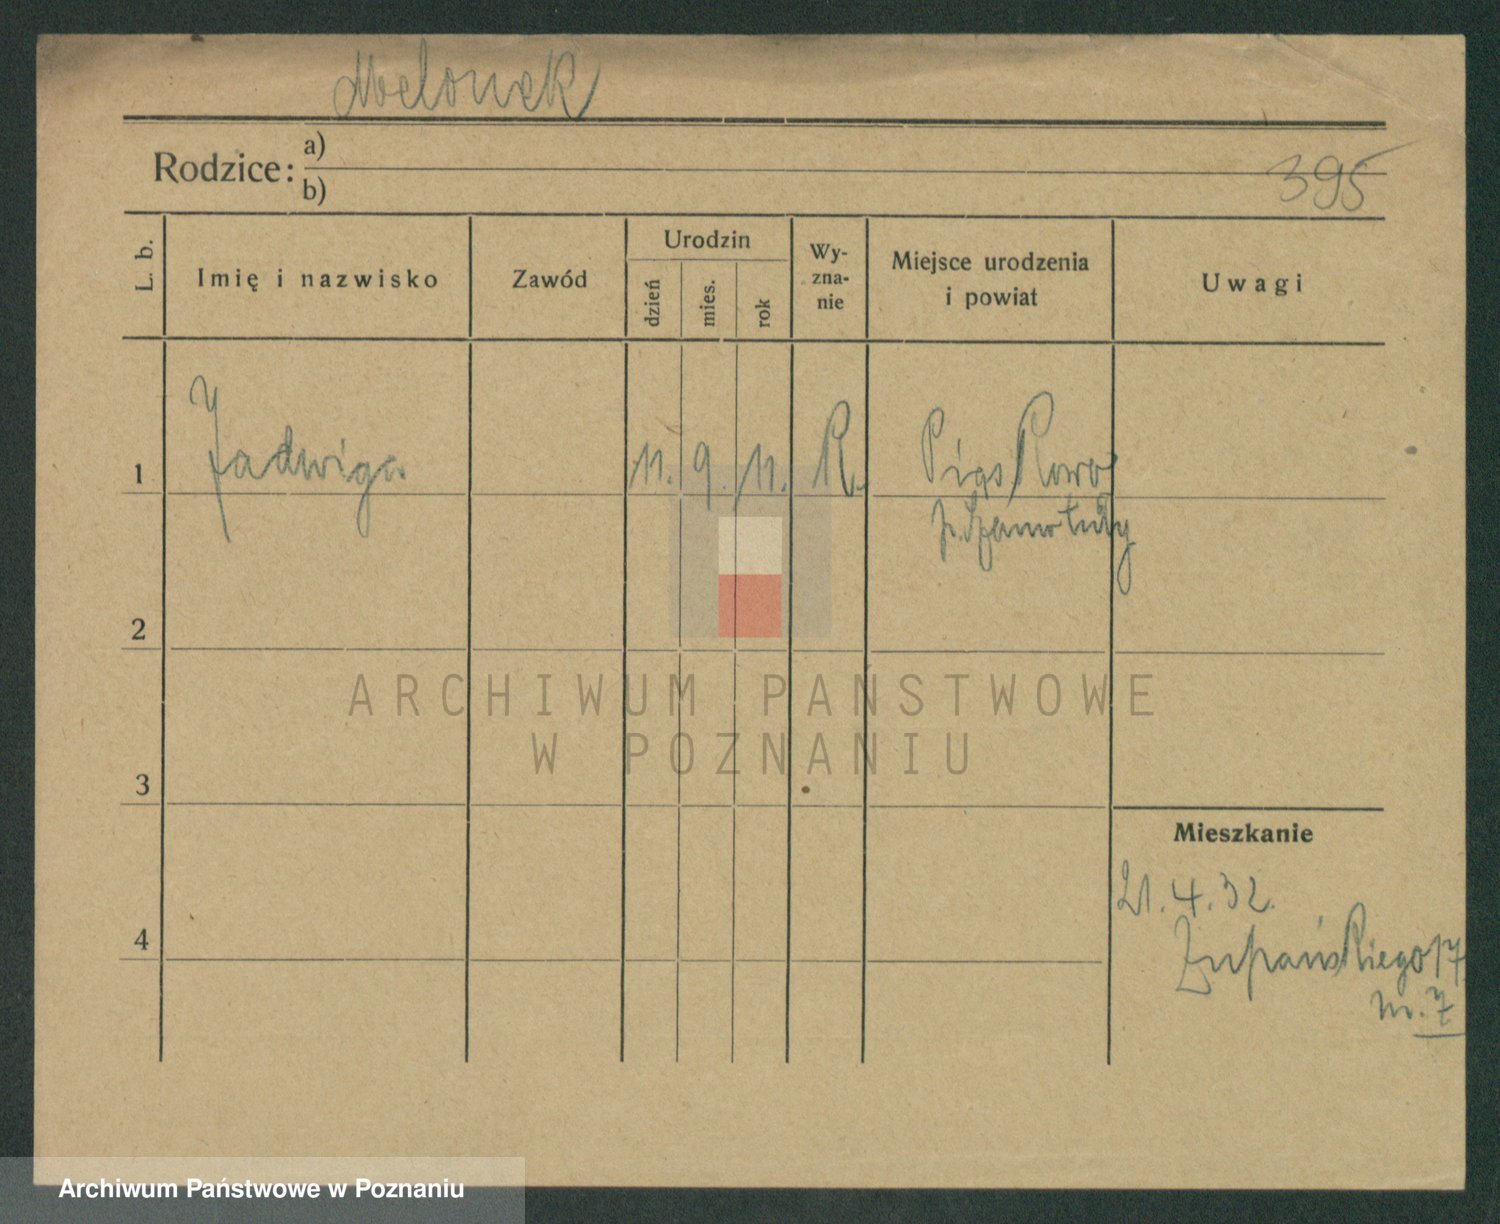 Melonek
Rodzice: a)
b)
395
L. b.
Imię i nazwisko
Zawód
Urodzin
dzień
mies.
rok
Wy-
zna-
nie
Miejsce urodzenia
i powiat
Uwagi
1
Jadwiga
11. 9. 11. R.
Piąskowo
p. Szamotuły
2
3
4
Mieszkanie
21.4.32.
Żupańskiego 17
m. 7
ARCHIWUM PAŃSTWOWE
W POZNANIU
Archiwum Państwowe w Poznaniu